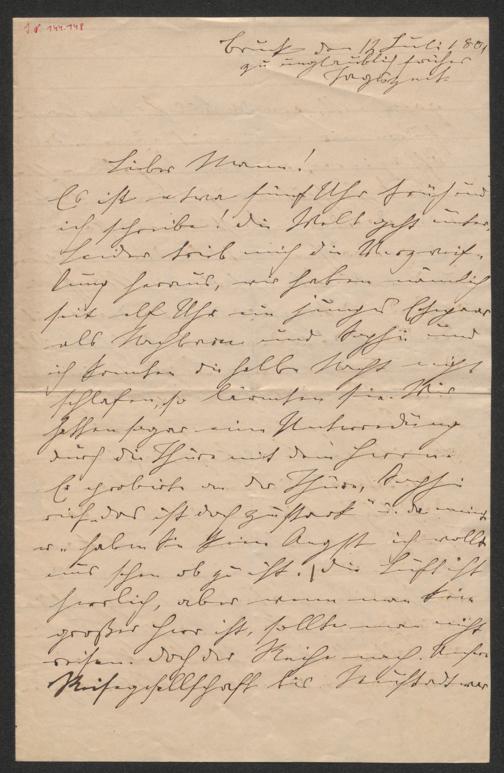 I.N. 144.148
Bruck den 12 Juli 1801
zu unglaublich früher
Tagszeit
Lieber Mann!
Es ist etwa fünf Uhr früh und
ich schreibe! Die Welt geht unter,
leider trieb mich die Verzweif-
lung heraus, wir haben nämlich
seit elf Uhr ein junges Ehepaar
als Nachbarn und Sophie und
ich konnten die halbe Nacht nicht
schlafen, so lärmten sie. Wir
hatten sogar eine Unterredung
durch die Thüre mit dem Herrn.
Er probirte an der Thüre, Sophie
rief „das ist doch zu stark" u. da meint
er „haben Sie keine Angst ich wollte
nur schen ob zu ist." Die Luft ist
herrlich, aber wenn man kein
großer Herr ist, sollte man nicht
reisen. Doch der Reihe nach. Unsere
Reisegesellschaft bis Neustadt war